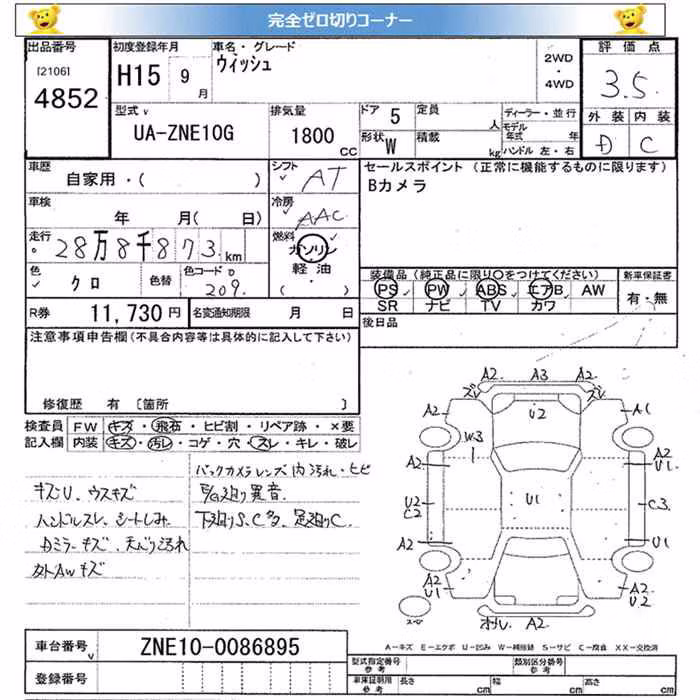 完全ゼロ切りコーナー
出品番号
[2106]
4852
初度登録年月
H15 9月
車名・グレード
ウィッシュ
2WD
・
4WD
評価点
3.5
外装 内装
D C
型式
UA-ZNE10G
排気量
1800 CC
ドア 5
定員 人
形状 W
積載 kg
ディーラー・並行
モデル年式 年
ハンドル 左・右
車歴
自家用・( )
シフト AT
冷房 AAC
車検
年 月( 日)
走行
28万8千873km
燃料
ガソリン
軽油
・
( )
色
クロ
色替
色コード
209
セールスポイント (正常に機能するものに限ります)
Bカメラ
装備品 (純正品に限り〇をつけてください)
PS PW ABS エアB AW
SR ナビ TV カワ
新車保証書
有・無
後日品
R券 11,730円
名変通知期限 月 日
注意事項申告欄 (不具合内容等は具体的に記入して下さい)
修復歴 有 [箇所 ]
検査員記入欄
FW キズ・飛石・ヒビ割・リペア跡・×要
内装 キズ・汚レ・コゲ・穴・スレ・キレ・破レ
キズU、ウスキズ
ハンドルスレ、シートしみ
Dミラーキズ、天ベリ汚れ
カトAWキズ
バックカメラレンズ内汚れ・ヒビ
E/G廻り異音
下廻りS、C多、足廻りC
A2 A3 A2
A2 A1
U2
W3
A2
A2
U1
U2
C2
U1
C3
A2 U1
A2
U1
A2
U2
A2
A-キズ E-エクボ U-凹み W-補修跡 S-サビ C-腐食 XX-交換済
車台番号
ZNE10-0086895
登録番号
型式指定番号
参考
類別区分番号
参考
車庫証明用
参考
長さ cm
幅 cm
高さ cm